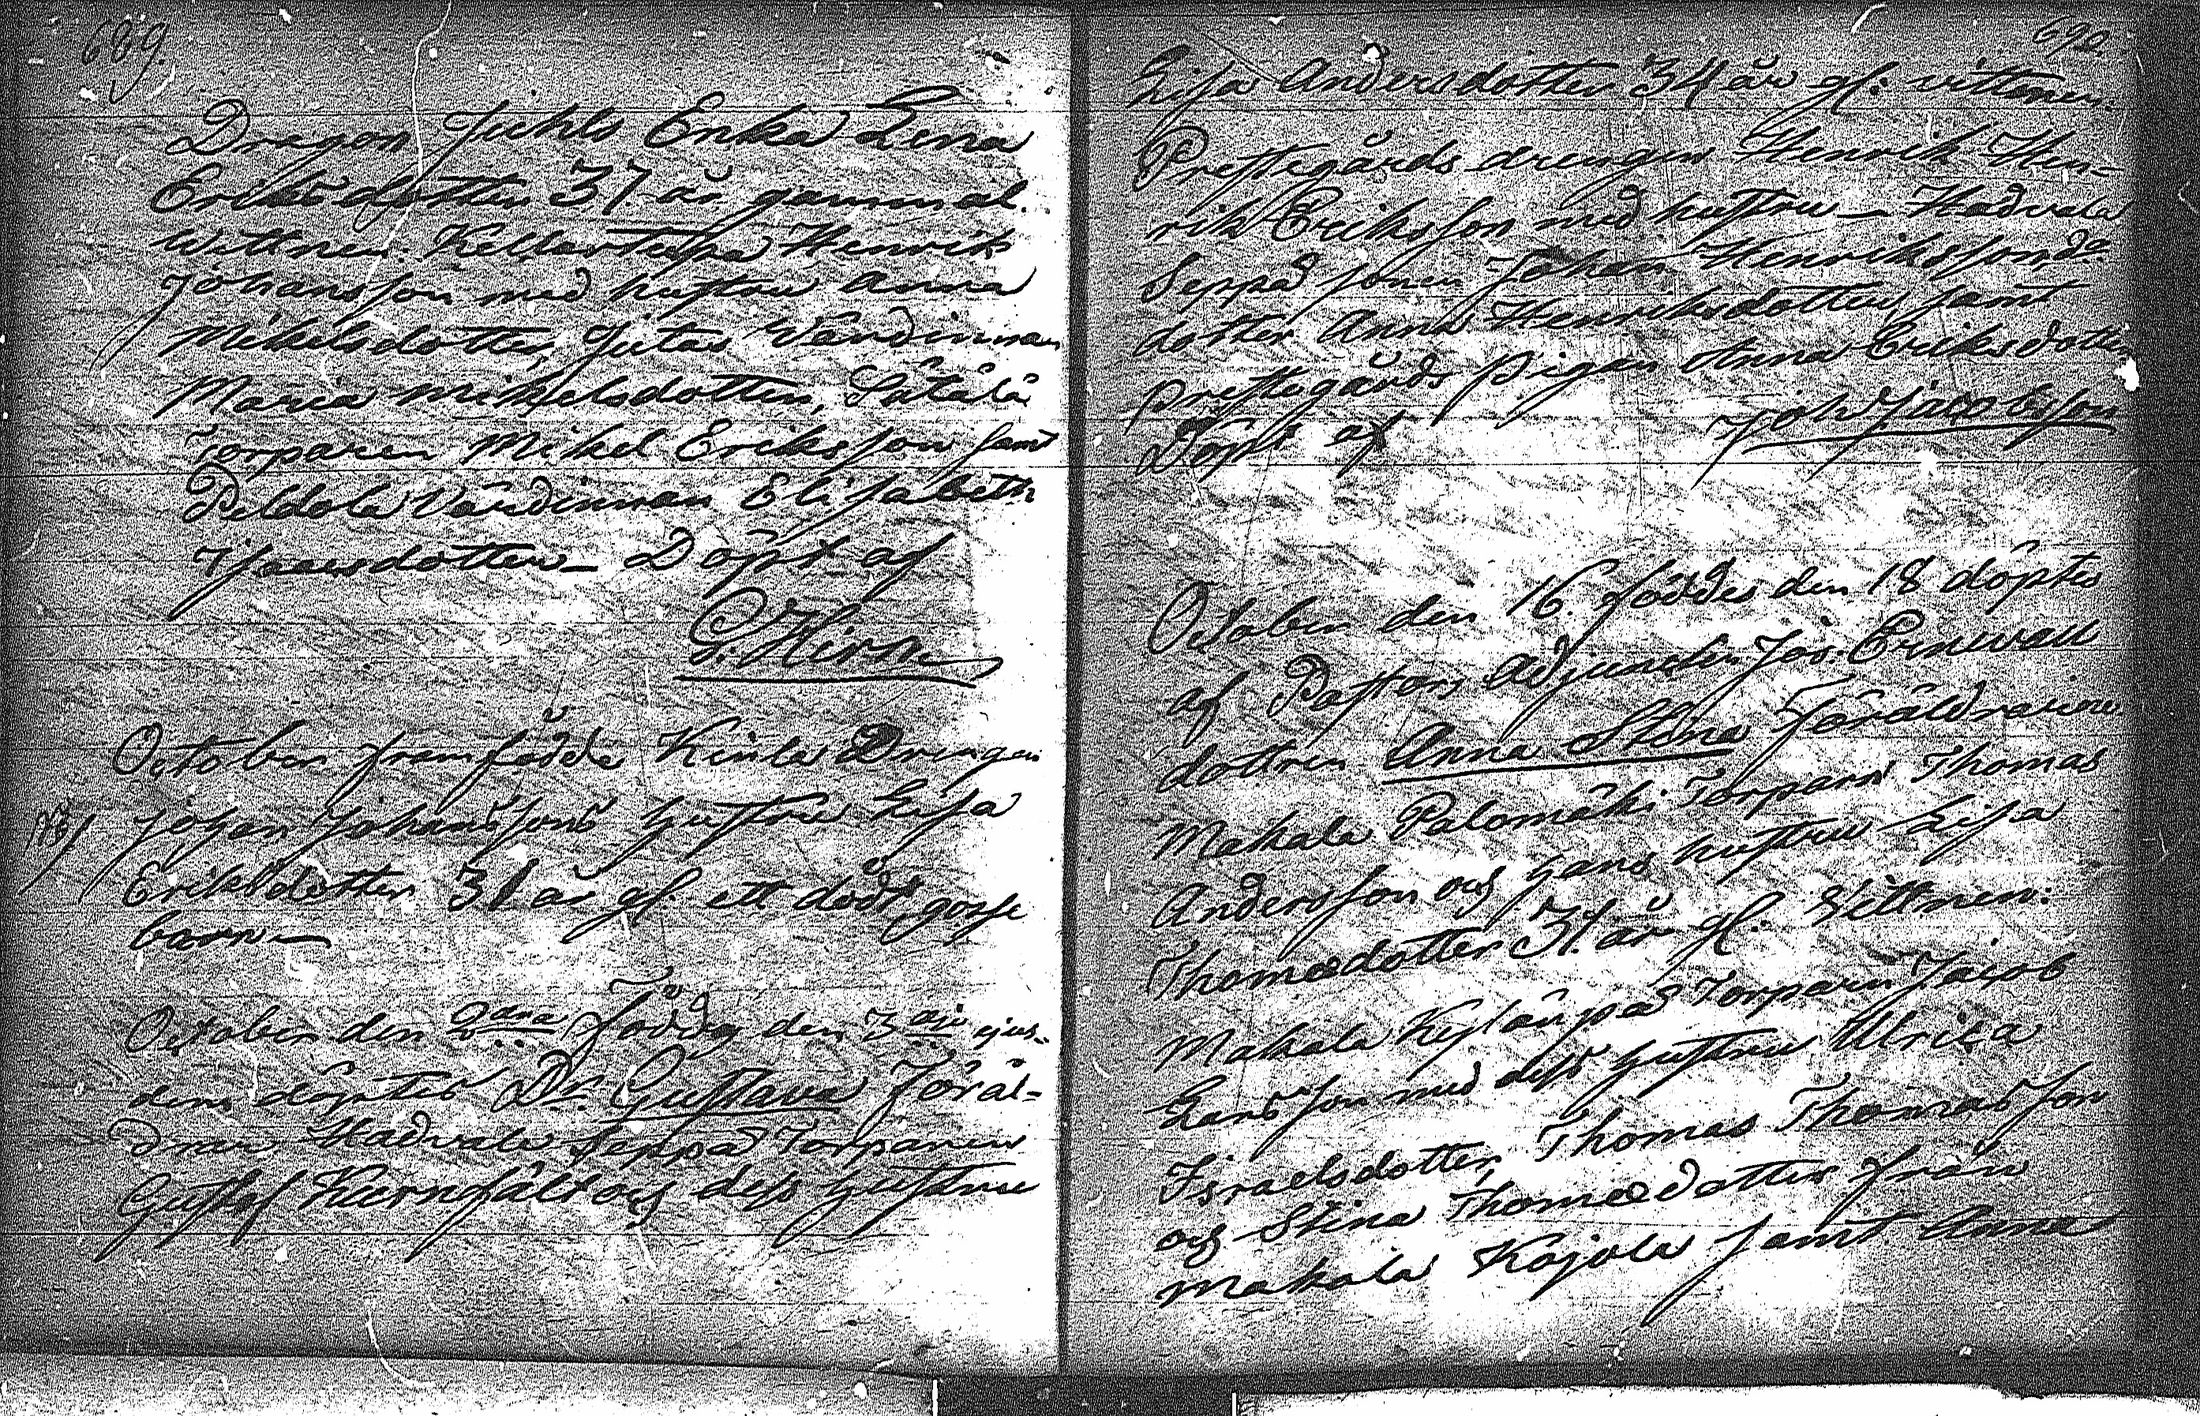 689.
Dragon Juhls Erika Lena
Eriksdotter 37 år gammal.
Wittnen: Henrik
Johansson med hustru Anna
Mikelsdotter, Jutas Värdinnan
Maria Mikelsdotter,
Torparen Mikel Eriksson samt
Peldola Värdinnan Elisabeth
Isaacsdotter – Döpt af
G. Hirn
October framfödde Drengen
Johan Johanssons hustru Lisa
Eriksdotter 31 år gl. ett dödt gosse
barn –
October den 2dra född den 3dje ejus-
dem döptes Dr. Gustava Föräl-
drar, Hadvala Seppä Torparen
Gustaf och dess hustru
690.
Lisa Andersdotter 34 år gl: vittnen:
Prestegårds drengen Henrik Hen-
rik Eriksson med hustru – Hadvala
Seppä sonen Johan Henriksson, do
dotter Anna Henriksdotter samt
Prestegårds pigan Anna Eriksdotter
Döpt af Joh. Jacobsson
October den 16. föddes den 18 döptes
af Pastors Adjuncten Jos. Perewall
dottren Anna Stina Föräldrarne
Makala Palomäki Torparn Thomas
Andersson och hans hustru Lisa
Thomædotter 31 år gl. Vittnen:
Makala Torparn Jacob
Larsson med dess hustru Ulrika
Israelsdotter, Thomas Thomasson
och Stina Thomædotter från
Makala Kojola samt Anna